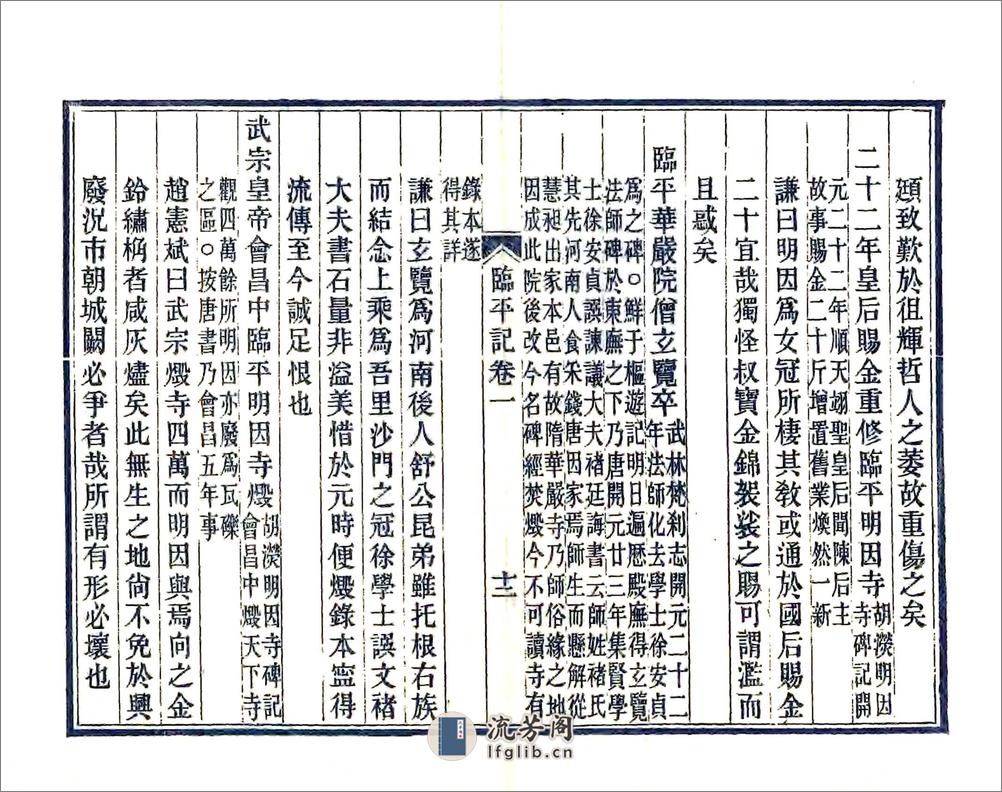 頲致歎於徂輝哲人之萎故重傷之矣
二十二年皇后賜金重修臨平明因寺
胡濙明因
寺碑記開
元二十二年順天翊聖皇后聞陳后主
故事賜金二十斤增置舊業煥然一新
謙曰明因爲女冠所棲其敎或通於國后賜金
二十宜哉獨怪叔寶金錦袈裟之賜可謂濫而
且惑矣
臨平華嚴院僧玄覽卒
武林梵刹志開元二十二
年法師化去學士徐安貞
爲之碑○鮮于樞遊記明日遍歷殿廡得玄覽
法師碑於東廡之下乃唐開元廿三年集賢學
士徐安貞譔諫議大夫褚廷誨書云師姓褚氏
其先河南人食采錢唐因家焉師生而懸解從
慧昶出家本邑有故隋華嚴寺乃師俗緣之地
因成此院後改今名碑經焚燬今不可讀寺有
臨平記卷一
十二
錄本遂
得其詳
謙曰玄覽爲河南後人舒公昆弟雖托根右族
而結念上乘爲吾里沙門之冠徐學士譔文褚
大夫書石量非溢美惜於元時便燬錄本寍得
流傳至今誠足恨也
武宗皇帝會昌中臨平明因寺燬
胡濙明因寺碑記
會昌中燬天下寺
觀四萬餘所明因亦廢爲瓦礫
之區○按唐書乃會昌五年事
趙憲斌曰武宗燬寺四萬而明因與焉向之金
鈴繡桷者咸灰燼矣此無生之地尙不免於興
廢況市朝城闕必爭者哉所謂有形必壞也
流芳阁
lfglib.cn